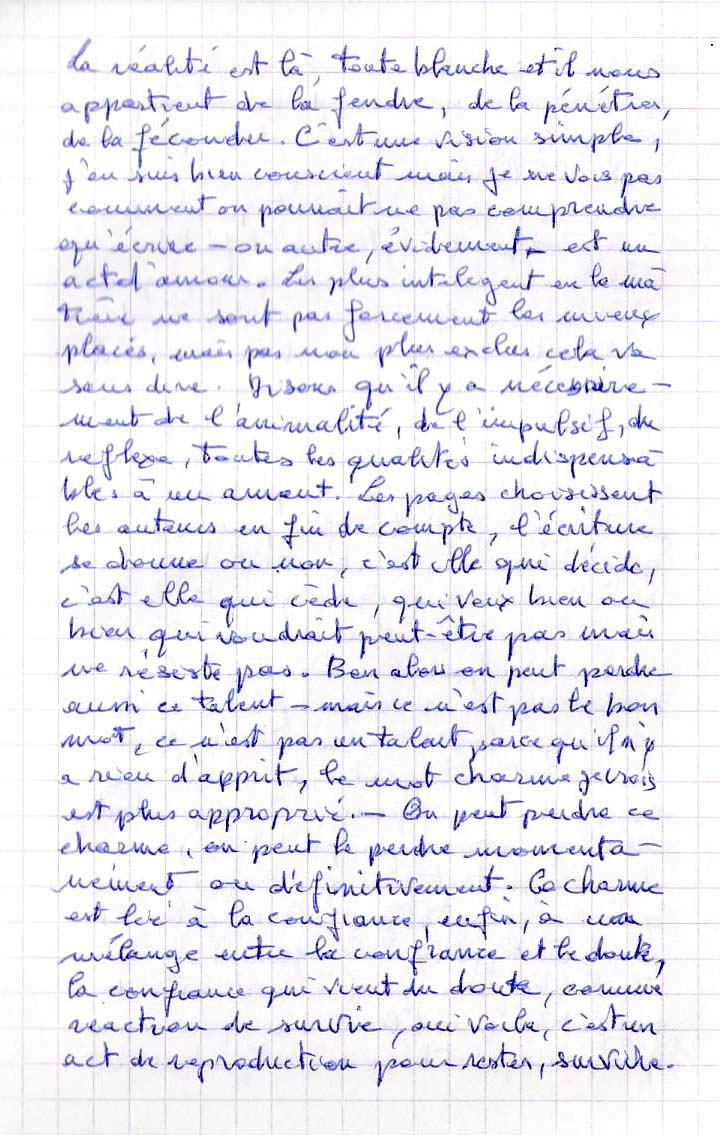 La réalité est là, toute blanche et il nous
appartient de la fendre, de la pénétrer,
de la féconder. C'est une vision simple,
j'en suis bien conscient mais je ne vois pas
comment on pourrait ne pas comprendre
qu'écrire – ou autre, évidement – est un
act d'amour. Les plus inteligent en la ma
tière ne sont pas forcement les mieux
placés, mais pas non plus exclus cela va
sans dire. Disons qu'il y a nécessaire-
ment de l'animalité, de l'impulsif, du
reflexe, toutes les qualités indispensa
bles à un amant. Les pages choisissent
les auteurs en fin de compte, l'écriture
se donne ou non, c'est elle qui décide,
c'est elle qui cède, qui veux bien ou
bien qui voudrait peut-être pas mais
ne résiste pas. Bon alors on peut perdre
aussi ce talent – mais ce n'est pas le bon
mot, ce n'est pas un talent parce qu'il n'y
a rien d'apprit, le mot charme je crois
est plus approprié. – On peut perdre ce
charme, on peut le perdre momenta-
nément ou définitivement. Ce charme
est lié à la confiance, enfin, à un
mélange entre la confiance et le doute,
la confiance qui vient du doute, comme
reaction de survie, oui voila, c'est un
act de reproduction pour rester, survivre.